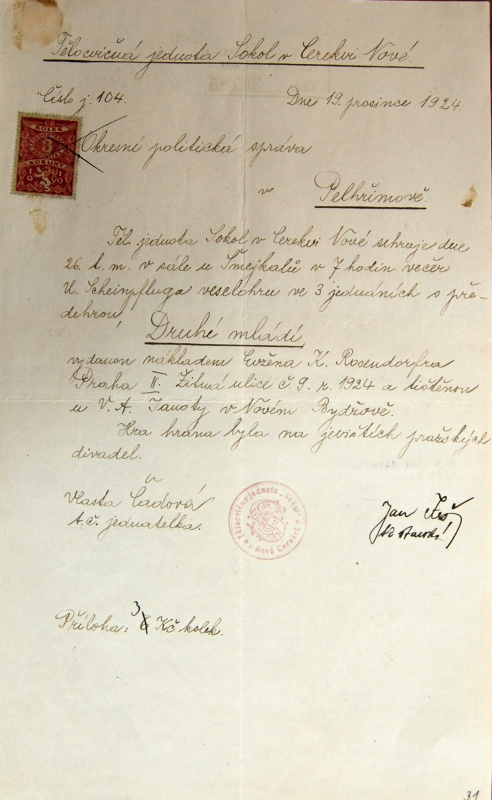 Tělocvičná jednota Sokol v Cerekvi Nové.
Číslo j. 104.
Dne 19. prosince 1924.
KOLEK
3
KORUNY
Okresní politická správa
v
Pelhřimově.
Těl. jednota Sokol v Cerekvi Nové sehraje dne
26. t. m. v sále u Šmejkalů v 7 hodin večer
K. Scheinpfluga veselohru ve 3 jednáních s pře-
dehrou
Druhé mládí
vydanou nákladem Evžena K. Rosendorfra
Praha II. Žitná ulice č. 9. r. 1924 a tištěnou
u V. A. Janoty v Novém Bydžově.
Hra hrána byla na jevištích pražských
divadel.
Vlasta Čadová
t. č. jednatelka.
Tělocvičná jednota „Sokol“
v Nové Cerekvi
Jan
t. č. starosta
Příloha: 3 Kč kolek.
31